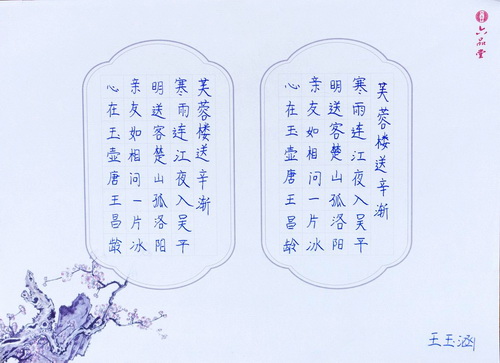 六品堂
芙蓉楼送辛渐
寒雨连江夜入吴平
明送客楚山孤洛阳
亲友如相问一片冰
心在玉壶唐王昌龄
芙蓉楼送辛渐
寒雨连江夜入吴平
明送客楚山孤洛阳
亲友如相问一片冰
心在玉壶唐王昌龄
王玉涵